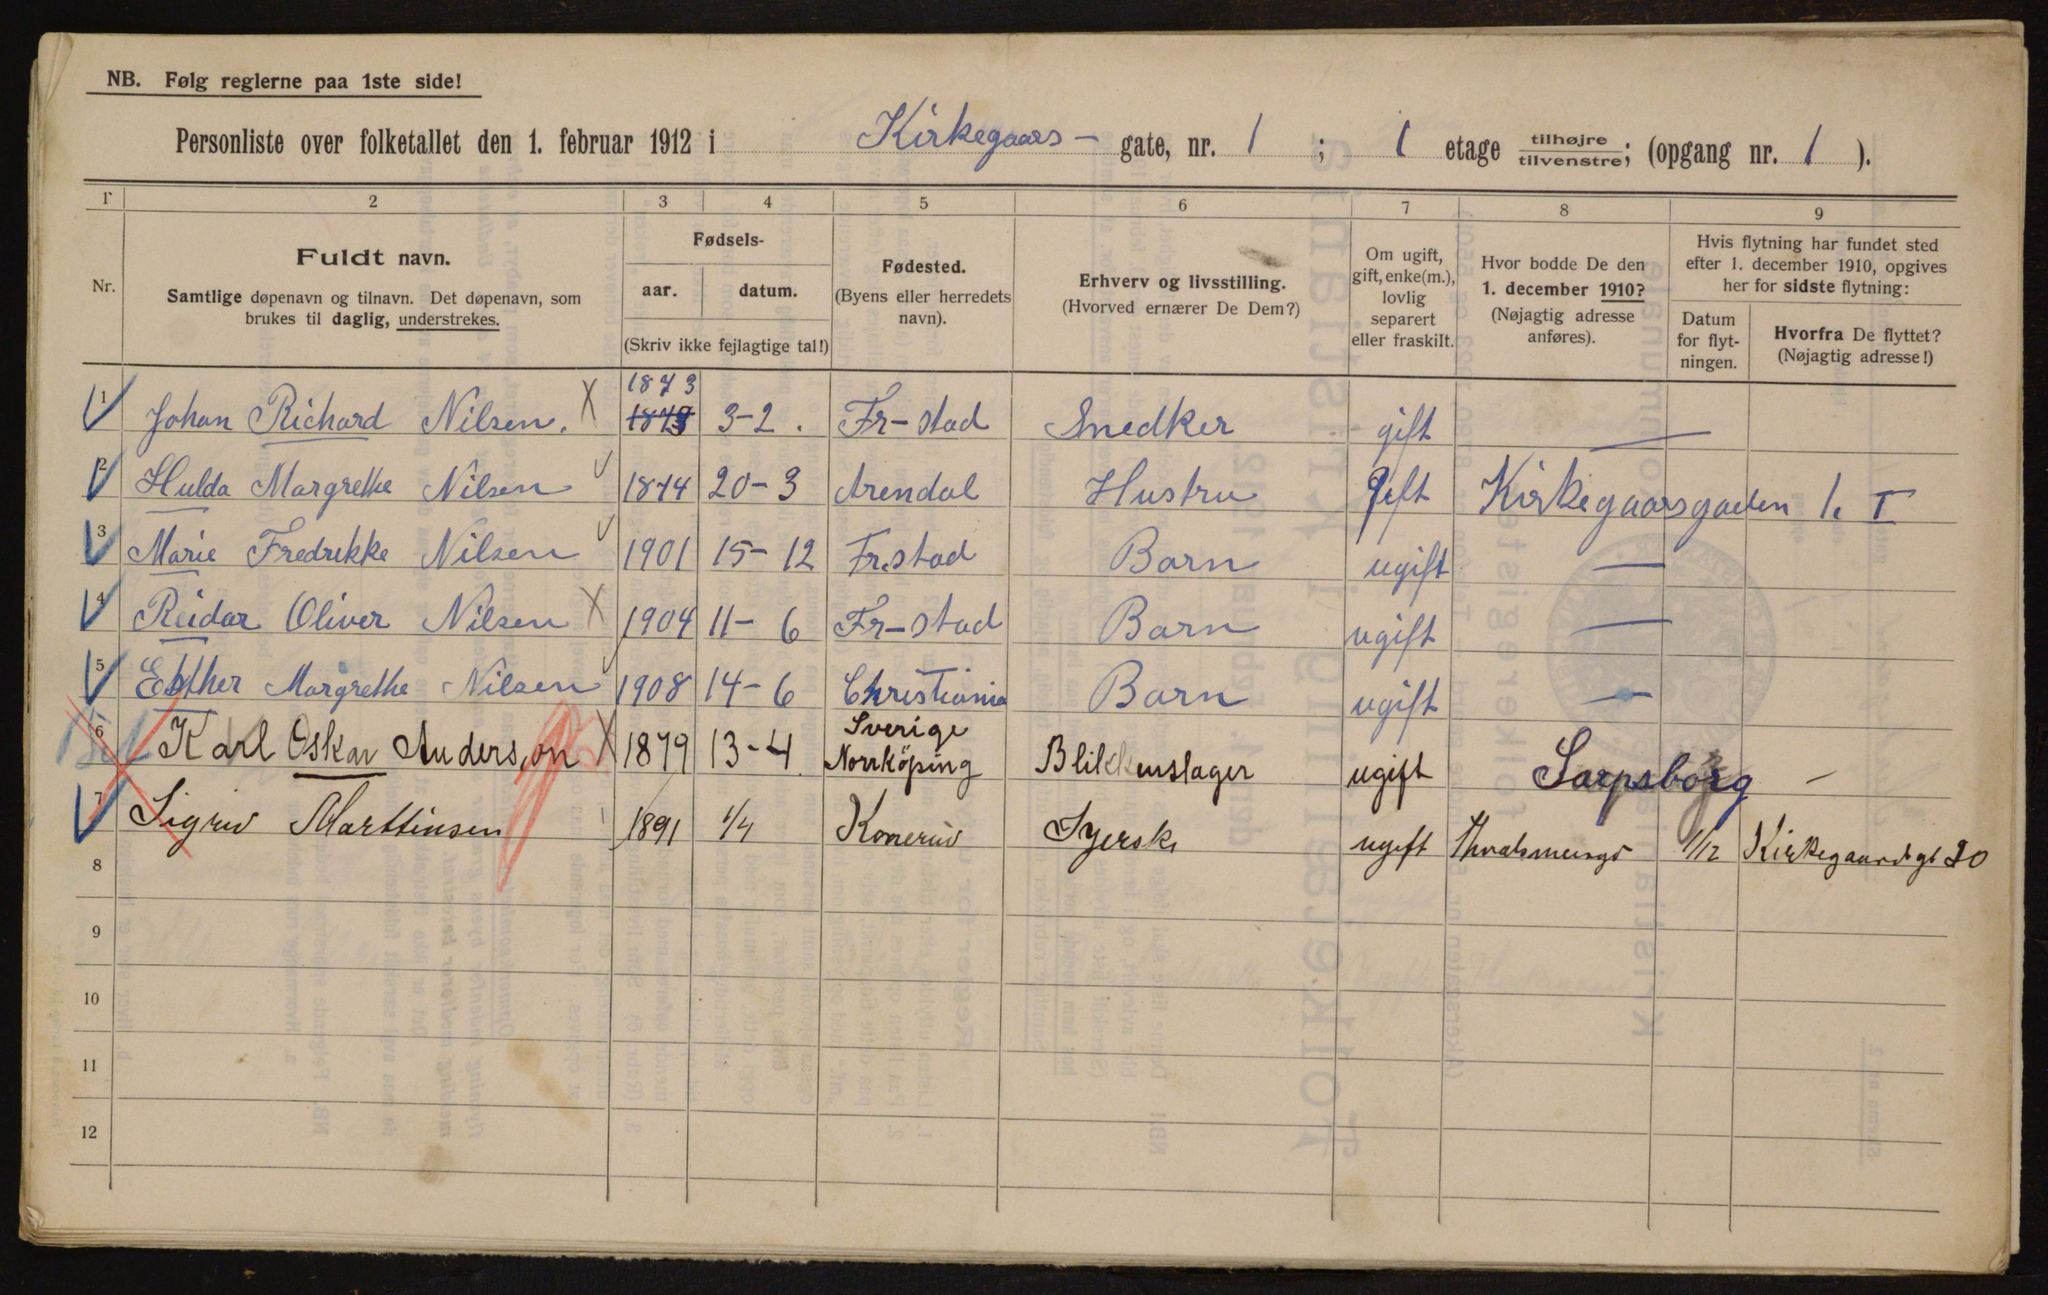 NB. Følg reglerne paa 1ste side!
Personliste over folketallet den 1. februar 1912 i Kirkegaars- gate, nr. 1 ; 1 etage tilhøjre tilvenstre; (opgang nr. 1 ).
1 2 3 4 5 6 7 8 9
Nr.
Fuldt navn.
Samtlige døpenavn og tilnavn. Det døpenavn, som
brukes til daglig, understrekes.
Fødsels-
aar. datum.
(Skriv ikke fejlagtige tal!)
Fødested.
(Byens eller herredets
navn).
Erhverv og livsstilling.
(Hvorved ernærer De Dem?)
Om ugift,
gift, enke(m.),
lovlig
separert
eller fraskilt.
Hvor bodde De den
1. december 1910?
(Nøjagtig adresse
anføres).
Hvis flytning har fundet sted
efter 1. december 1910, opgives
her for sidste flytning:
Datum
for flyt-
ningen.
Hvorfra De flyttet?
(Nøjagtig adresse!)
1873
1 Johan Richard Nilsen. X 3-2. Fr-stad Snedker gift —
2 Hulda Margrethe Nilsen 1874 20-3 Arendal Hustru gift Kirkegaarsgaden 1. I
3 Marie Fredrikke Nilsen 1901 15-12 Fr.stad Barn ugift —
4 Reidar Oliver Nilsen X 1904 11-6 Fr-stad Barn ugift —
5 Esther Margrethe Nilsen 1908 14-6 Christiania Barn ugift —
6 Karl Oskar Anderson X 1879 13-4 Sverige Norrköping Blikkenslager ugift Sarpsborg —
7 Sigrid Marttinsen 1891 1/4 ugift 1/12 Kirkegaardsgt 20
8
9
10
11
12